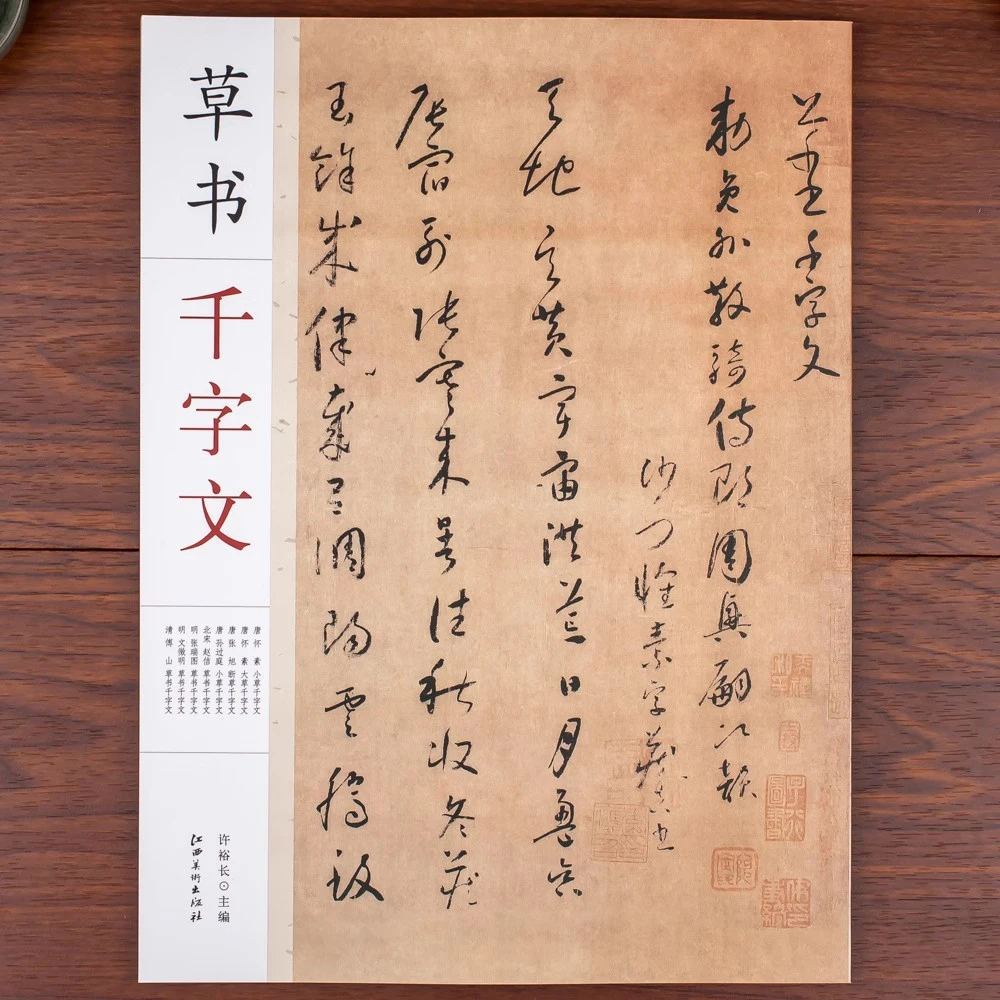 草书
千字文
唐 怀 素 小草千字文
唐 怀 素 大草千字文
唐 张 旭 断草千字文
唐 孙过庭 小草千字文
北宋 赵佶 草书千字文
明 张瑞图 草书千字文
明 文徵明 草书千字文
清 傅 山 草书千字文
许裕长⊙主编
江西美術出版社
千字文
勅員外散騎侍郎周興嗣次韻
沙門懷素字藏真書
天地玄黃宇宙洪荒日月盈昃
辰宿列張寒來暑往秋收冬藏
閏餘成律歲呂調陽雲騰致